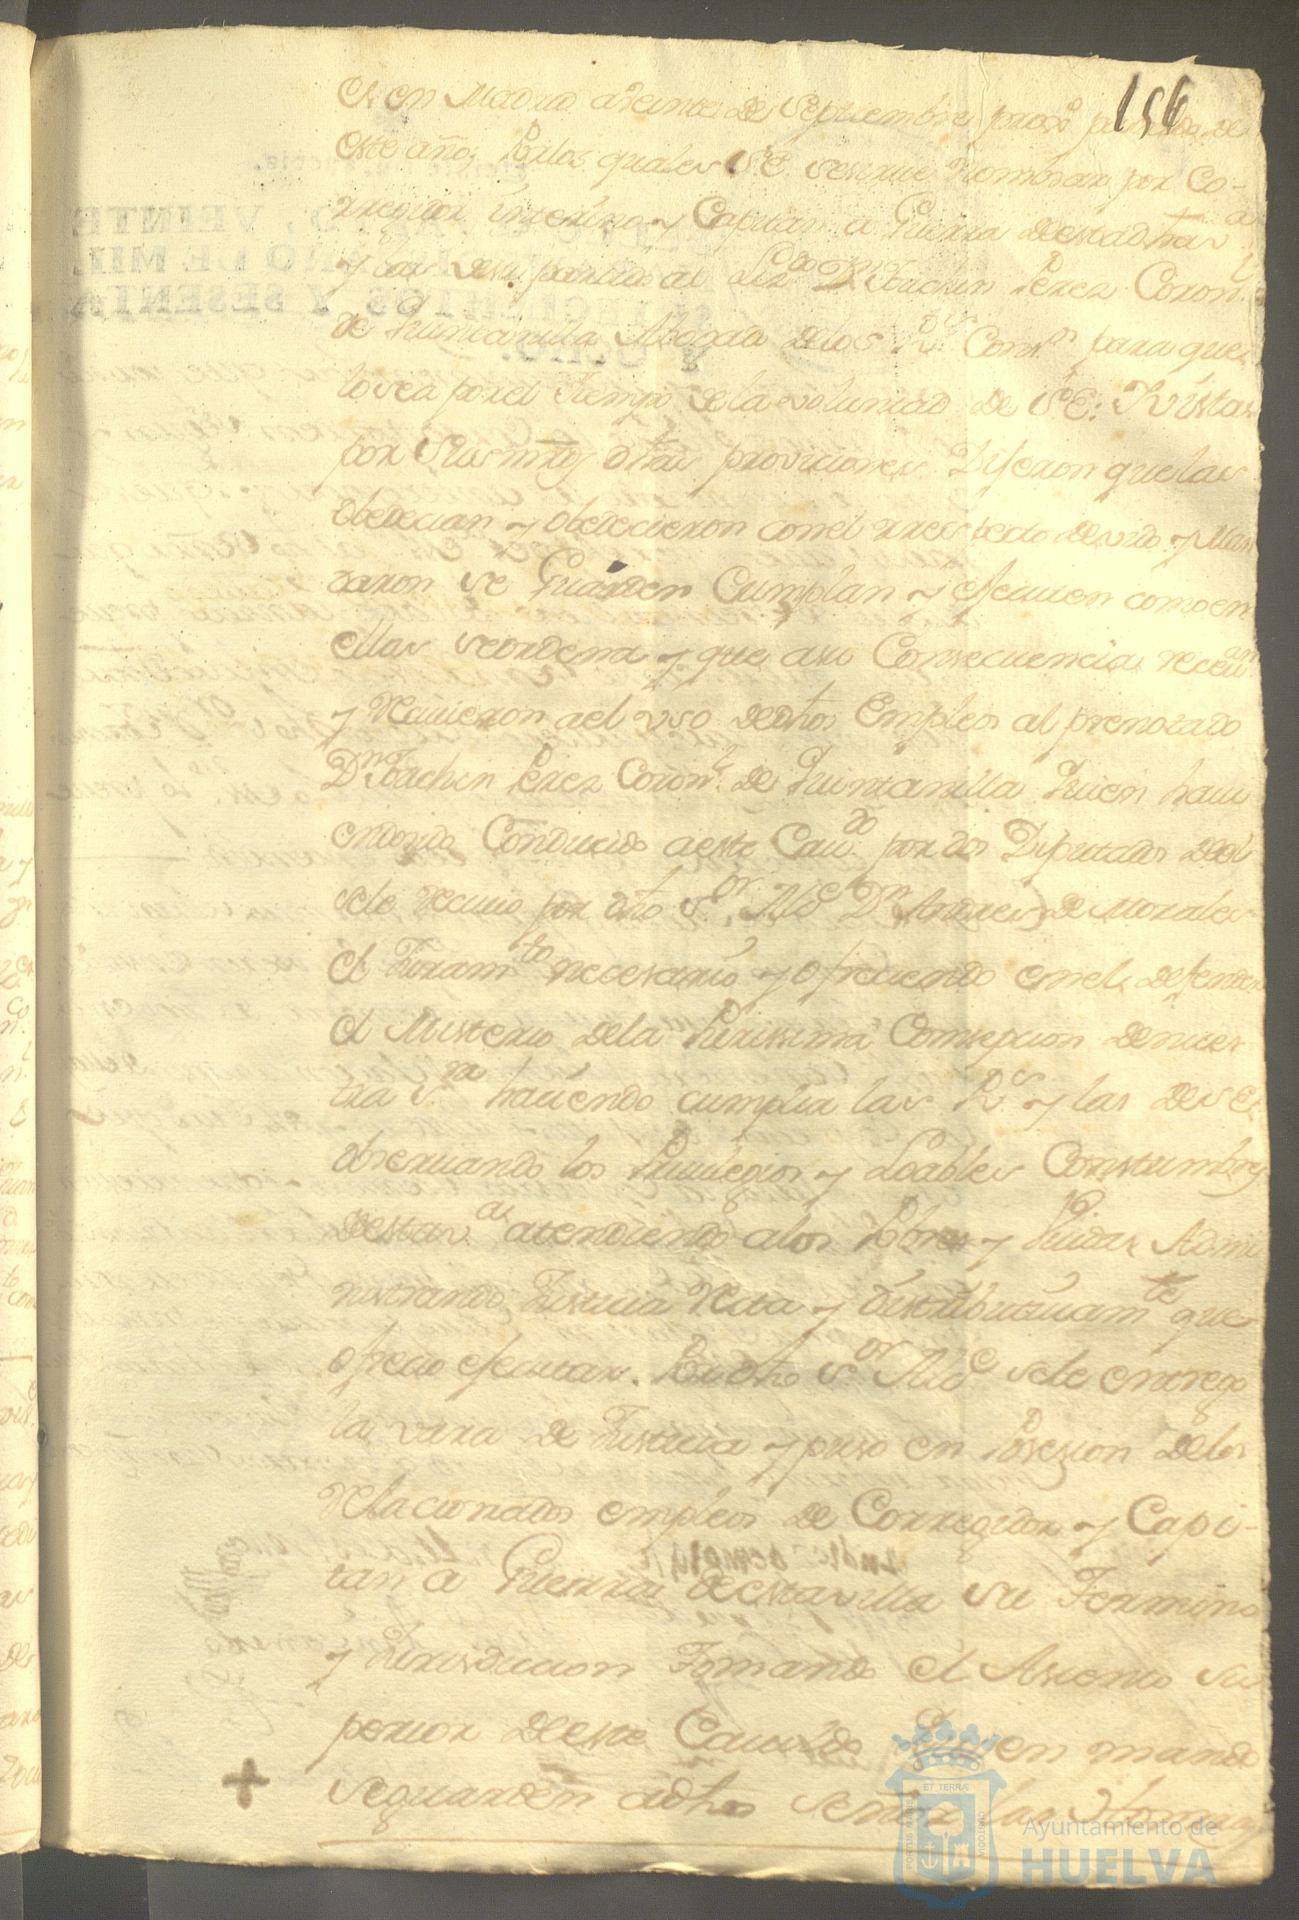 156
en Madrid a veinte de Septiembre proxº pasado de
este año, Por los quales S.E. se sirve Nombrar por Co-
rregidor interino y Capitan a Guerra de esta dha va
y las de su partido al Lizdo Dn Joachin Perez Coronl
de Quintanilla Abogado de los Rs Consos para que
lo sea por el tiempo de la voluntad de S.E: Y Vistas
por sus mrds dhas provisiones Dijeron que las
obedecian y obedecieron con el rrespecto devido y Man
daron se Guarden Cumplan y ejecuten como en
ellas se ordena y que a su Consecuencia
y Recivieron a el uso de dhos Empleos al prenotado
Dn Joachin Perez Coronl de Quintanilla Quien havi
endosido Conducido a este Cavdo por dos Diputados del
se le recivio por dho Sor Alcde Dn Andres de Morales
el Juramto necesario y ofreciendo en el defender
el Misterio de la Purissima Consepcion de nues
tra Sra haciendo cumplir las Rs y las de S.E.
observando los Privilegios y Loables Constumbres
de esta va atendiendo a los Pobres y Viudas, Admi
nistrando Justicia Recta y distributivamte que
ofrecio ejecutar. Por dho Sor Alcde se le entrego
la vara de Justicia y puso en Posesion de los
Relacionados empleos de Corregidor y Capi-
tan a Guerra de esta villa su Termino
y Jurisdiccion Tomando el Asiento su
perior de este Cavildo Quien mando
se guarden a dho Señor las Honrras
ET TERRÆ
Ayuntamiento de
HUELVA